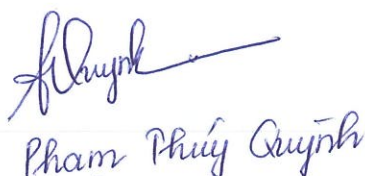 Quynh
Pham Thúy Quỳnh